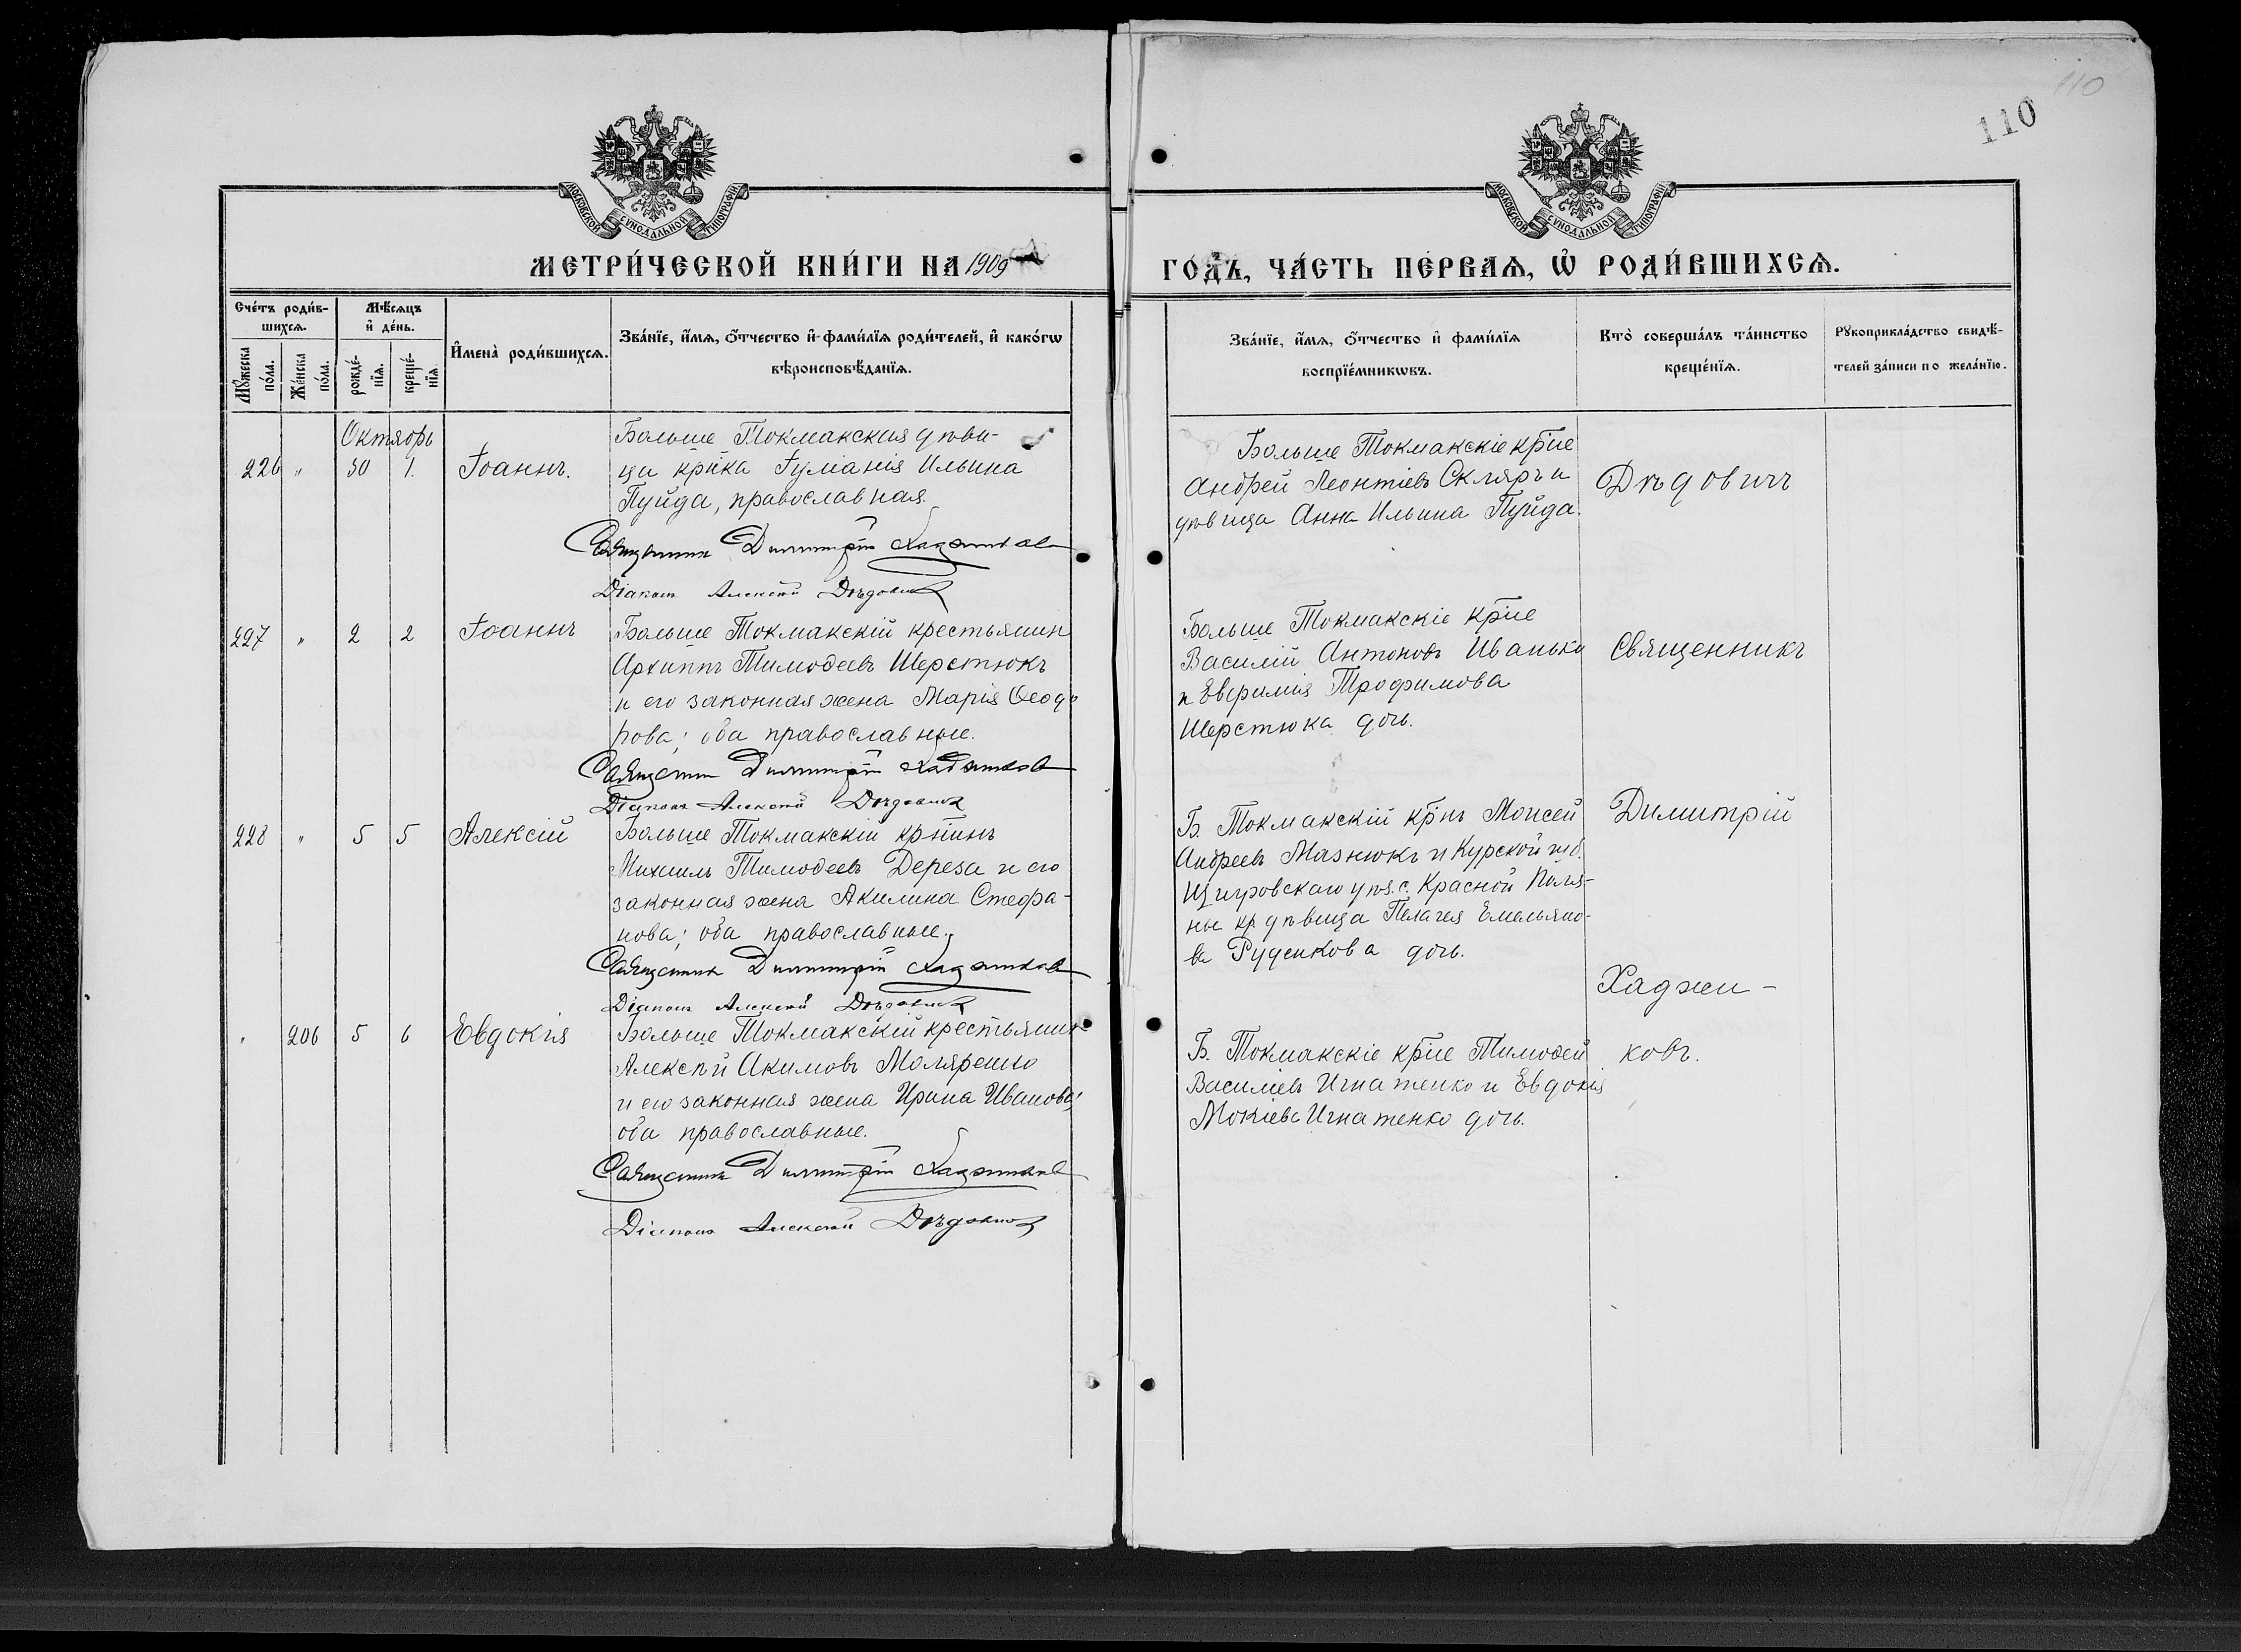 110
110
МОСКОВСКОЙ СѴНОДАЛЬНОЙ ТИПОГРАФІИ
МОСКОВСКОЙ СѴНОДАЛЬНОЙ ТИПОГРАФІИ
МЕТРИ́ЧЕСКОЙ КНИ́ГИ НА 1909
ГО́ДЪ, ЧА́СТЬ ПЕ́РВАѦ, Ѿ РОДИ́ВШИХСѦ.
Сче́тъ роди́в-
шихсѧ.
Мꙋ́жеска по́ла.
Же́нска по́ла.
Мѣ́сѧцъ
и҆ де́нь.
рожде́-
нїѧ.
креще́-
нїѧ.
И҆мена̀ роди́вшихсѧ.
Зва́нїе, и҆́мѧ, ѻ҆́тчество и҆ фами́лїѧ роди́телей, и҆ како́гѡ
вѣроисповѣ́данїѧ.
Зва́нїе, и҆́мѧ, ѻ҆́тчество и҆ фами́лїѧ
воспрїе́мникѡвъ.
Кто̀ соверша́лъ та́инство
креще́нїѧ.
Рꙋкоприкла́дство свидѣ́-
телей за́писи по жела́нїю.
Октябрь
226 " 30 1. Іоаннъ.
Больше Токмакская дѣви-
ца кр̅нка Іуліанія Ильина
Пуйда, православная.
Священник Димитрій Хаджинов
Діаконъ Алексѣй Дѣдович
Больше Токмакскіе кр̅не
Андрей Леонтіевъ Скляръ и
дѣвица Анна Ильина Пуйда.
227 " 2 2 Іоаннъ
Больше Токмакскій крестьянин
Архиппъ Тимоѳеевъ Шерстюкъ
и его законная жена Марія Ѳеодо
рова; оба православные.
Священник Димитрій Хаджинов
Діаконъ Алексѣй Дѣдович
Больше Токмакскіе кр̅не
Василій Антоновъ Иванько
и Евфимія Трофимова
Шерстюка дочь.
228 " 5 5 Алексій
Больше Токмакскій кр̅нинъ
Михаилъ Тимоѳеевъ Дереза и его
законная жена Акилина Стефа-
нова; оба православные.
Священник Димитрій Хаджинов
Діаконъ Алексѣй Дѣдович
Б. Токмакскій кр̅нъ Моисей
Андреевъ Мазнюкъ и Курской губ.
Щигровскаго уѣз. с. Красной Поля-
ны кр. дѣвица Пелагея Емельяно-
ва Руденкова дочь.
" 206 5 6 Евдокія
Больше Токмакскій крестьянин
Алексѣй Акимовъ Моляренко
и его законная жена Ирина Иванова;
оба православные.
Священник Димитрій Хаджинов
Діаконъ Алексѣй Дѣдович
Б. Токмакскіе кр̅не Тимоѳей
Василіевъ Игнатенко и Евдокія
Мокіева Игнатенко дочь.
Дѣдовичъ
Священникъ
Димитрій
Хаджи-
новъ.